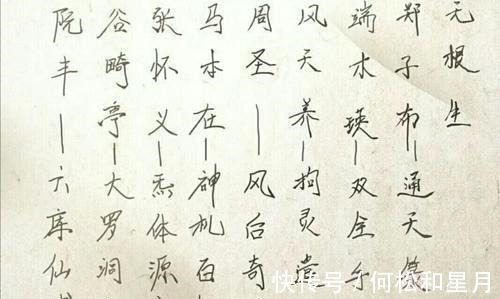 无根生
郑子布—通天箓
端木瑛—双全手
风天养—拘灵遣
周圣—风后奇
马本在—神机百
张怀义—炁体源
谷畸亭—大罗洞
阮丰—六库仙
快传号:何松和星月